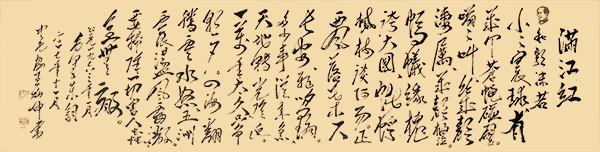 满江红
和郭沫若
小小寰球有
几个苍蝇碰壁
嗡嗡叫几声
凄厉几声抽泣
蚂蚁缘槐
夸大国蚍蜉
撼树谈何易正
西风落叶下
长安飞鸣镝
多少事从来急
天地转光阴迫
一万年太久只争
朝夕四海翻
腾云水怒五洲
震荡风雷激
要扫除一切害人虫
全无敌